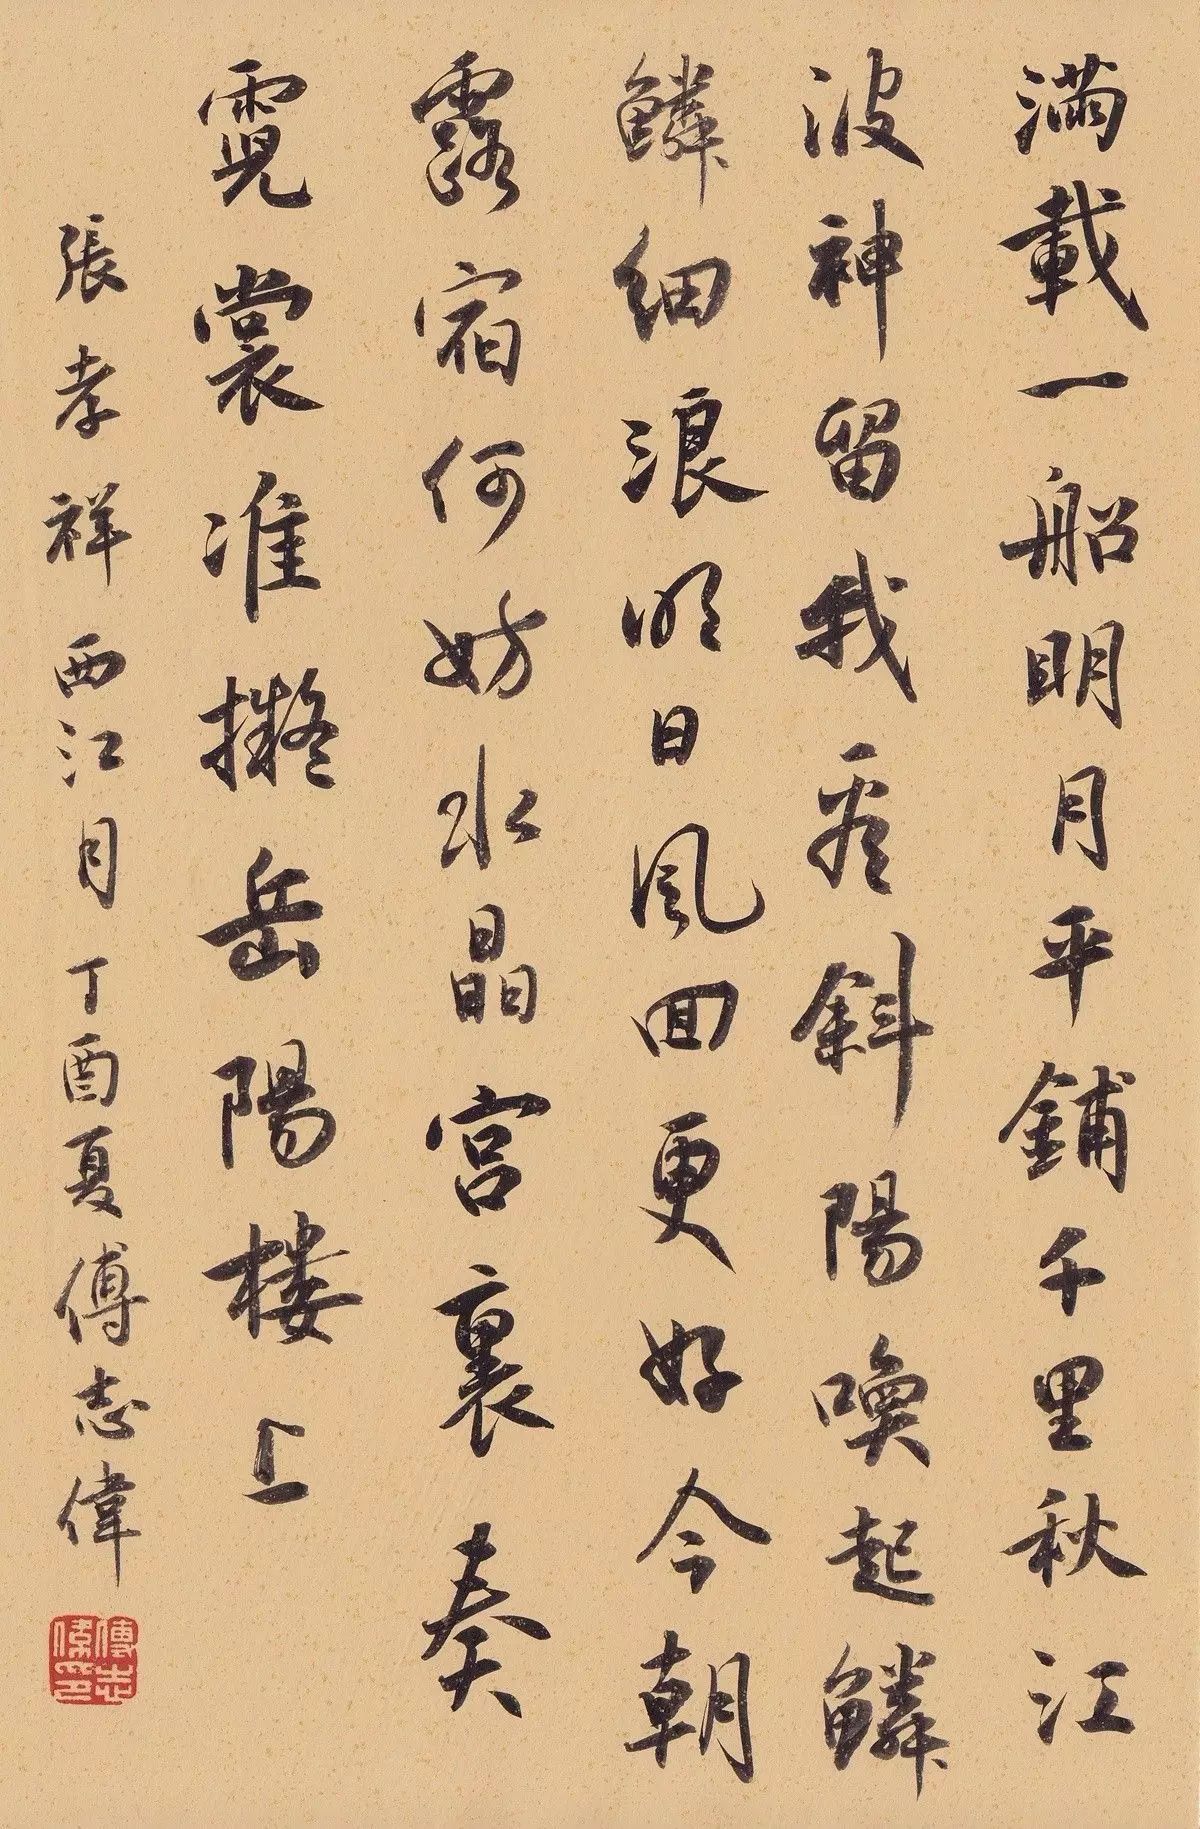 滿載一船明月平鋪千里秋江
波神留我看斜陽喚起鱗
鱗細浪明日風回更好今朝
露宿何妨水晶宮裏奏
霓裳准擬岳陽楼上
張孝祥西江月丁酉夏傅志偉
傅志偉印